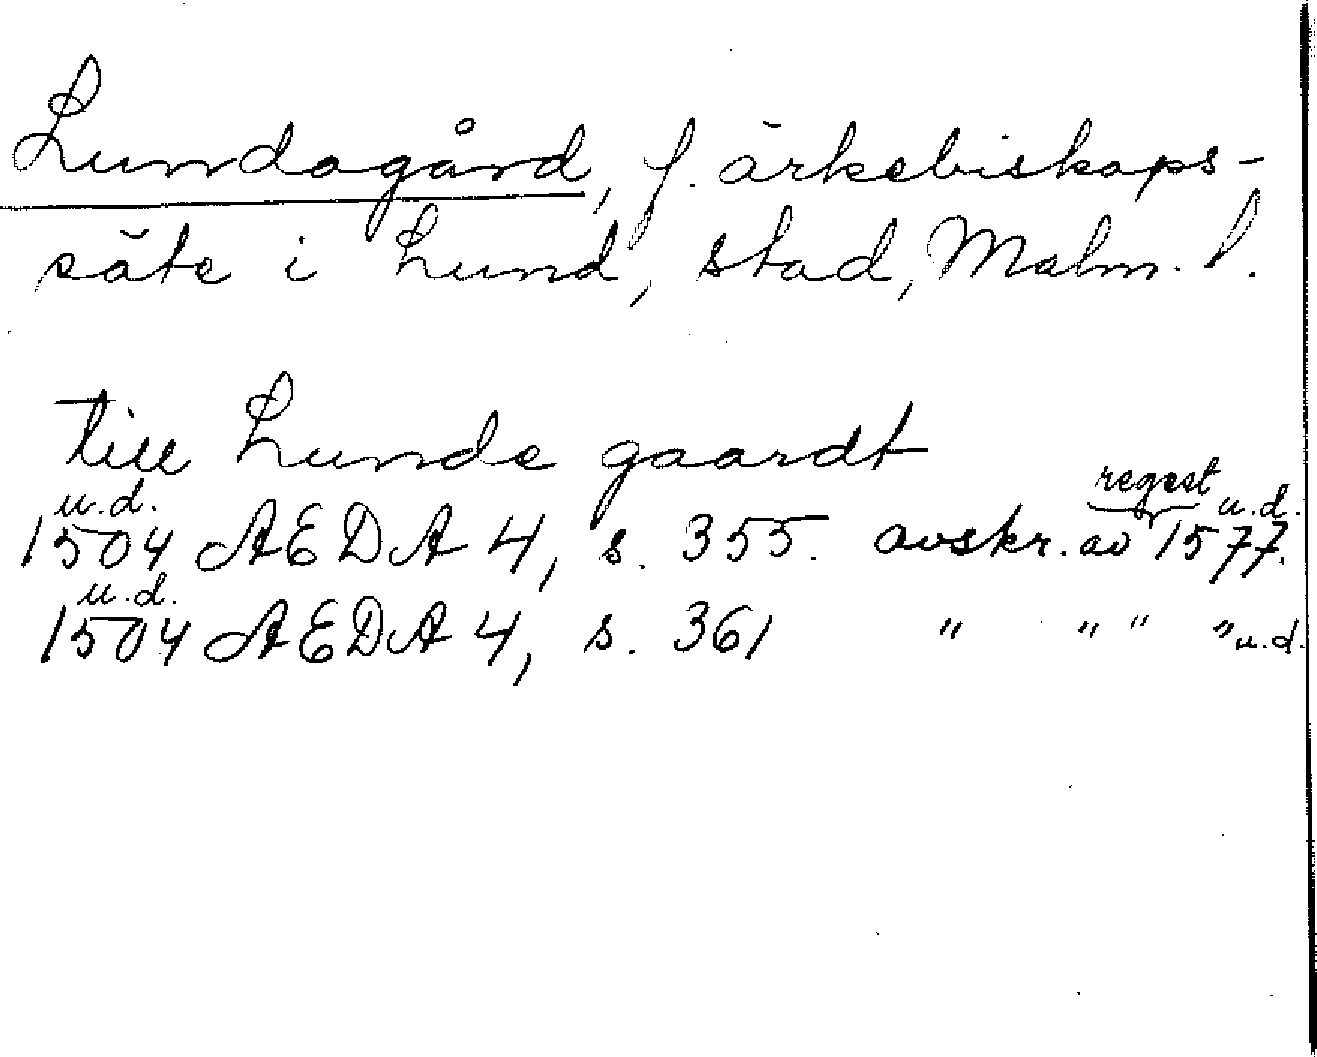 Lundagård, f. ärkebiskops-
säte i Lund, stad, Malm. l.
till Lunde gaardt
u.d. regest u.d.
1504 AEDA 4, s. 355. avskr. av 1577.
u.d.
1504 AEDA 4, s. 361 " " " " u.d.